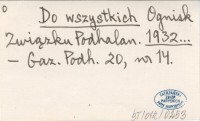 o
Do wszystkich Ognisk
Związku Podhalan. 1932...
– Gaz. Podh. 20, nr 14.